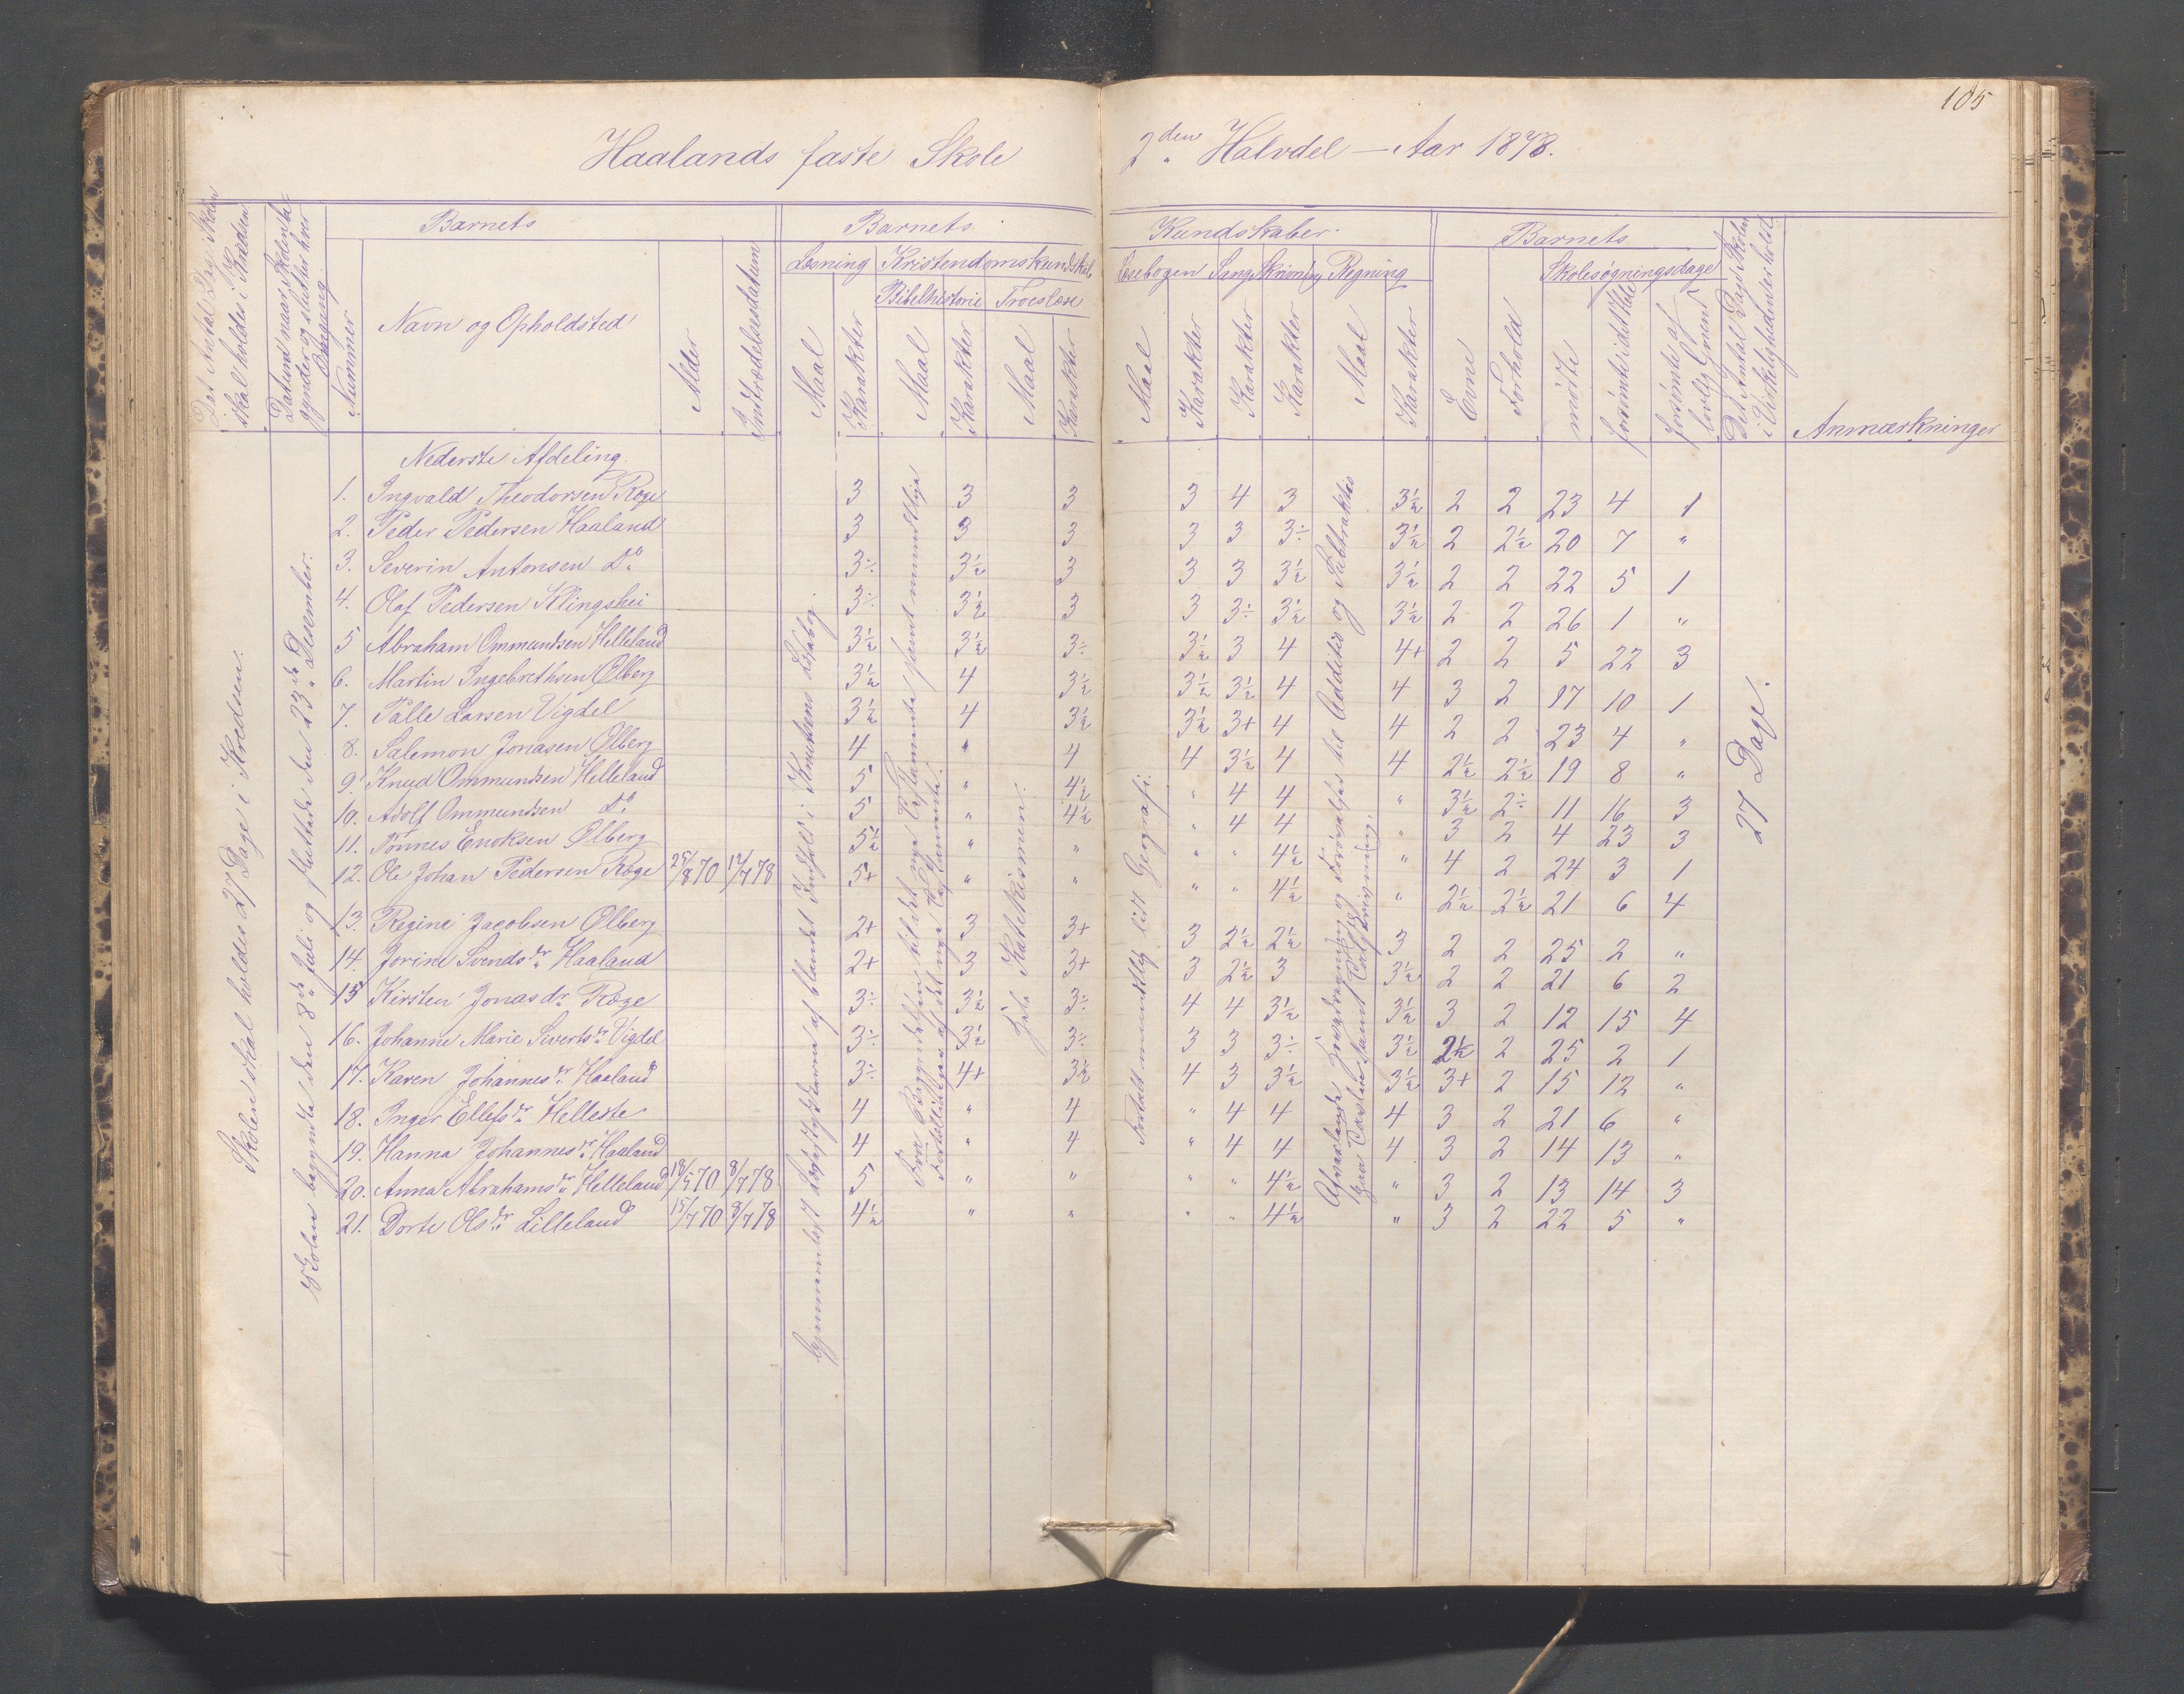 105
Haalands faste Skole 2den Halvdel – Aar 1878.
Det Antal Dage Skolen skal holdes i Kredsen
Datum naar Skolen begynder og slutter hver Omgang.
Barnets
Nummer
Navn og Opholdsted
Alder
Indtrædelsesdatum
Barnets
Læsning
Maal
Karakter
Kristendomskundskab
Bibelhistorie
Maal
Karakter
Troeslære
Maal
Karakter
Kundskaber.
Læsebogen
Maal
Karakter
Sang
Karakter
Skrivning
Karakter
Regning
Maal
Karakter
Barnets
Evne
Forhold
Skolesøgningsdage
mødte
forsømte i det Hele
forsømte af lovlig Grund
Det Antal Dage Skolen i Virkeligheden er holdt.
Anmærkninger
Skolen skal holdes 27 Dage i Kredsen.
Skolen begyndte den 8de Juli og sluttede den 23de Desember.
i Knutsens Læsebog.
Hele Katekismen.
Fortalt mundtlig lidt Geografi.
27 Dage.
Nederste Afdeling.
1. Ingvald Theodorsen Røge 3 3 3 3 4 3 3½ 2 2 23 4 1
2. Peder Pedersen Haaland 3 3 3 3 3 3÷ 3½ 2 2½ 20 7 "
3. Severin Antonsen Do 3÷ 3½ 3 3 3 3½ 3½ 2 2 22 5 1
4. Olaf Pedersen Klingshei 3÷ 3½ 3 3 3÷ 3½ 3½ 2 2 26 1 "
5 Abraham Ommundsen Helleland 3½ 3½ 3÷ 3½ 3 4 4+ 2 2 5 22 3
6. Martin Ingebrethsen Ølberg 3½ 4 3½ 3½ 3½ 4 4 3 2 17 10 1
7. Palle Larsen Vigdel 3½ 4 3½ 3½ 3+ 4 4 2 2 23 4 "
8. Salemon Jonasen Ølberg 4 " 4 4 3½ 4 4 2½ 2½ 19 8 "
9. Knud Ommundsen Helleland 5 " 4½ " 4 4 " 3½ 2÷ 11 16 3
10. Adolf Ommundsen Do 5 " 4½ " 4 4 " 3 2 4 23 3
11. Tønnes Enoksen Ølberg 5½ " " " " 4½ " 4 2 24 3 1
12. Ole Johan Pedersen Røge 25/8 70 12/7 78 5+ " " " " 4½ " 2½ 2½ 21 6 4
13. Regine Jacobsen Ølberg 2+ 3 3+ 3 2½ 2½ 3 2 2 25 2 "
14. Jorine Svendsdr. Haaland 2+ 3 3+ 3 2½ 3 3½ 2 2 21 6 2
15 Kirsten Jonasdr. Røge 3÷ 3½ 3÷ 4 4 3½ 3½ 3 2 12 15 4
16. Johanne Marie Sivertsdr. Vigdel 3÷ 3½ 3÷ 3 3 3÷ 3½ 2½ 2 25 2 1
17. Karen Johannesdr. Haaland 3÷ 4+ 3½ 4 3 3½ 3½ 3+ 2 15 12 "
18. Inger Ellefsdr. Helleste 4 " 4 " 4 4 4 3 2 21 6 "
19. Hanna Johannesdr. Haaland 4 " 4 " 4 4 4 3 2 14 13 "
20. Anna Abrahamsdr. Helleland 18/5 70 8/7 78 5 " " " " 4½ " 3 2 13 14 3
21. Dorte Olsdr. Lilleland 15/7 70 8/7 78 4½ " " " " 4½ " 3 2 22 5 "